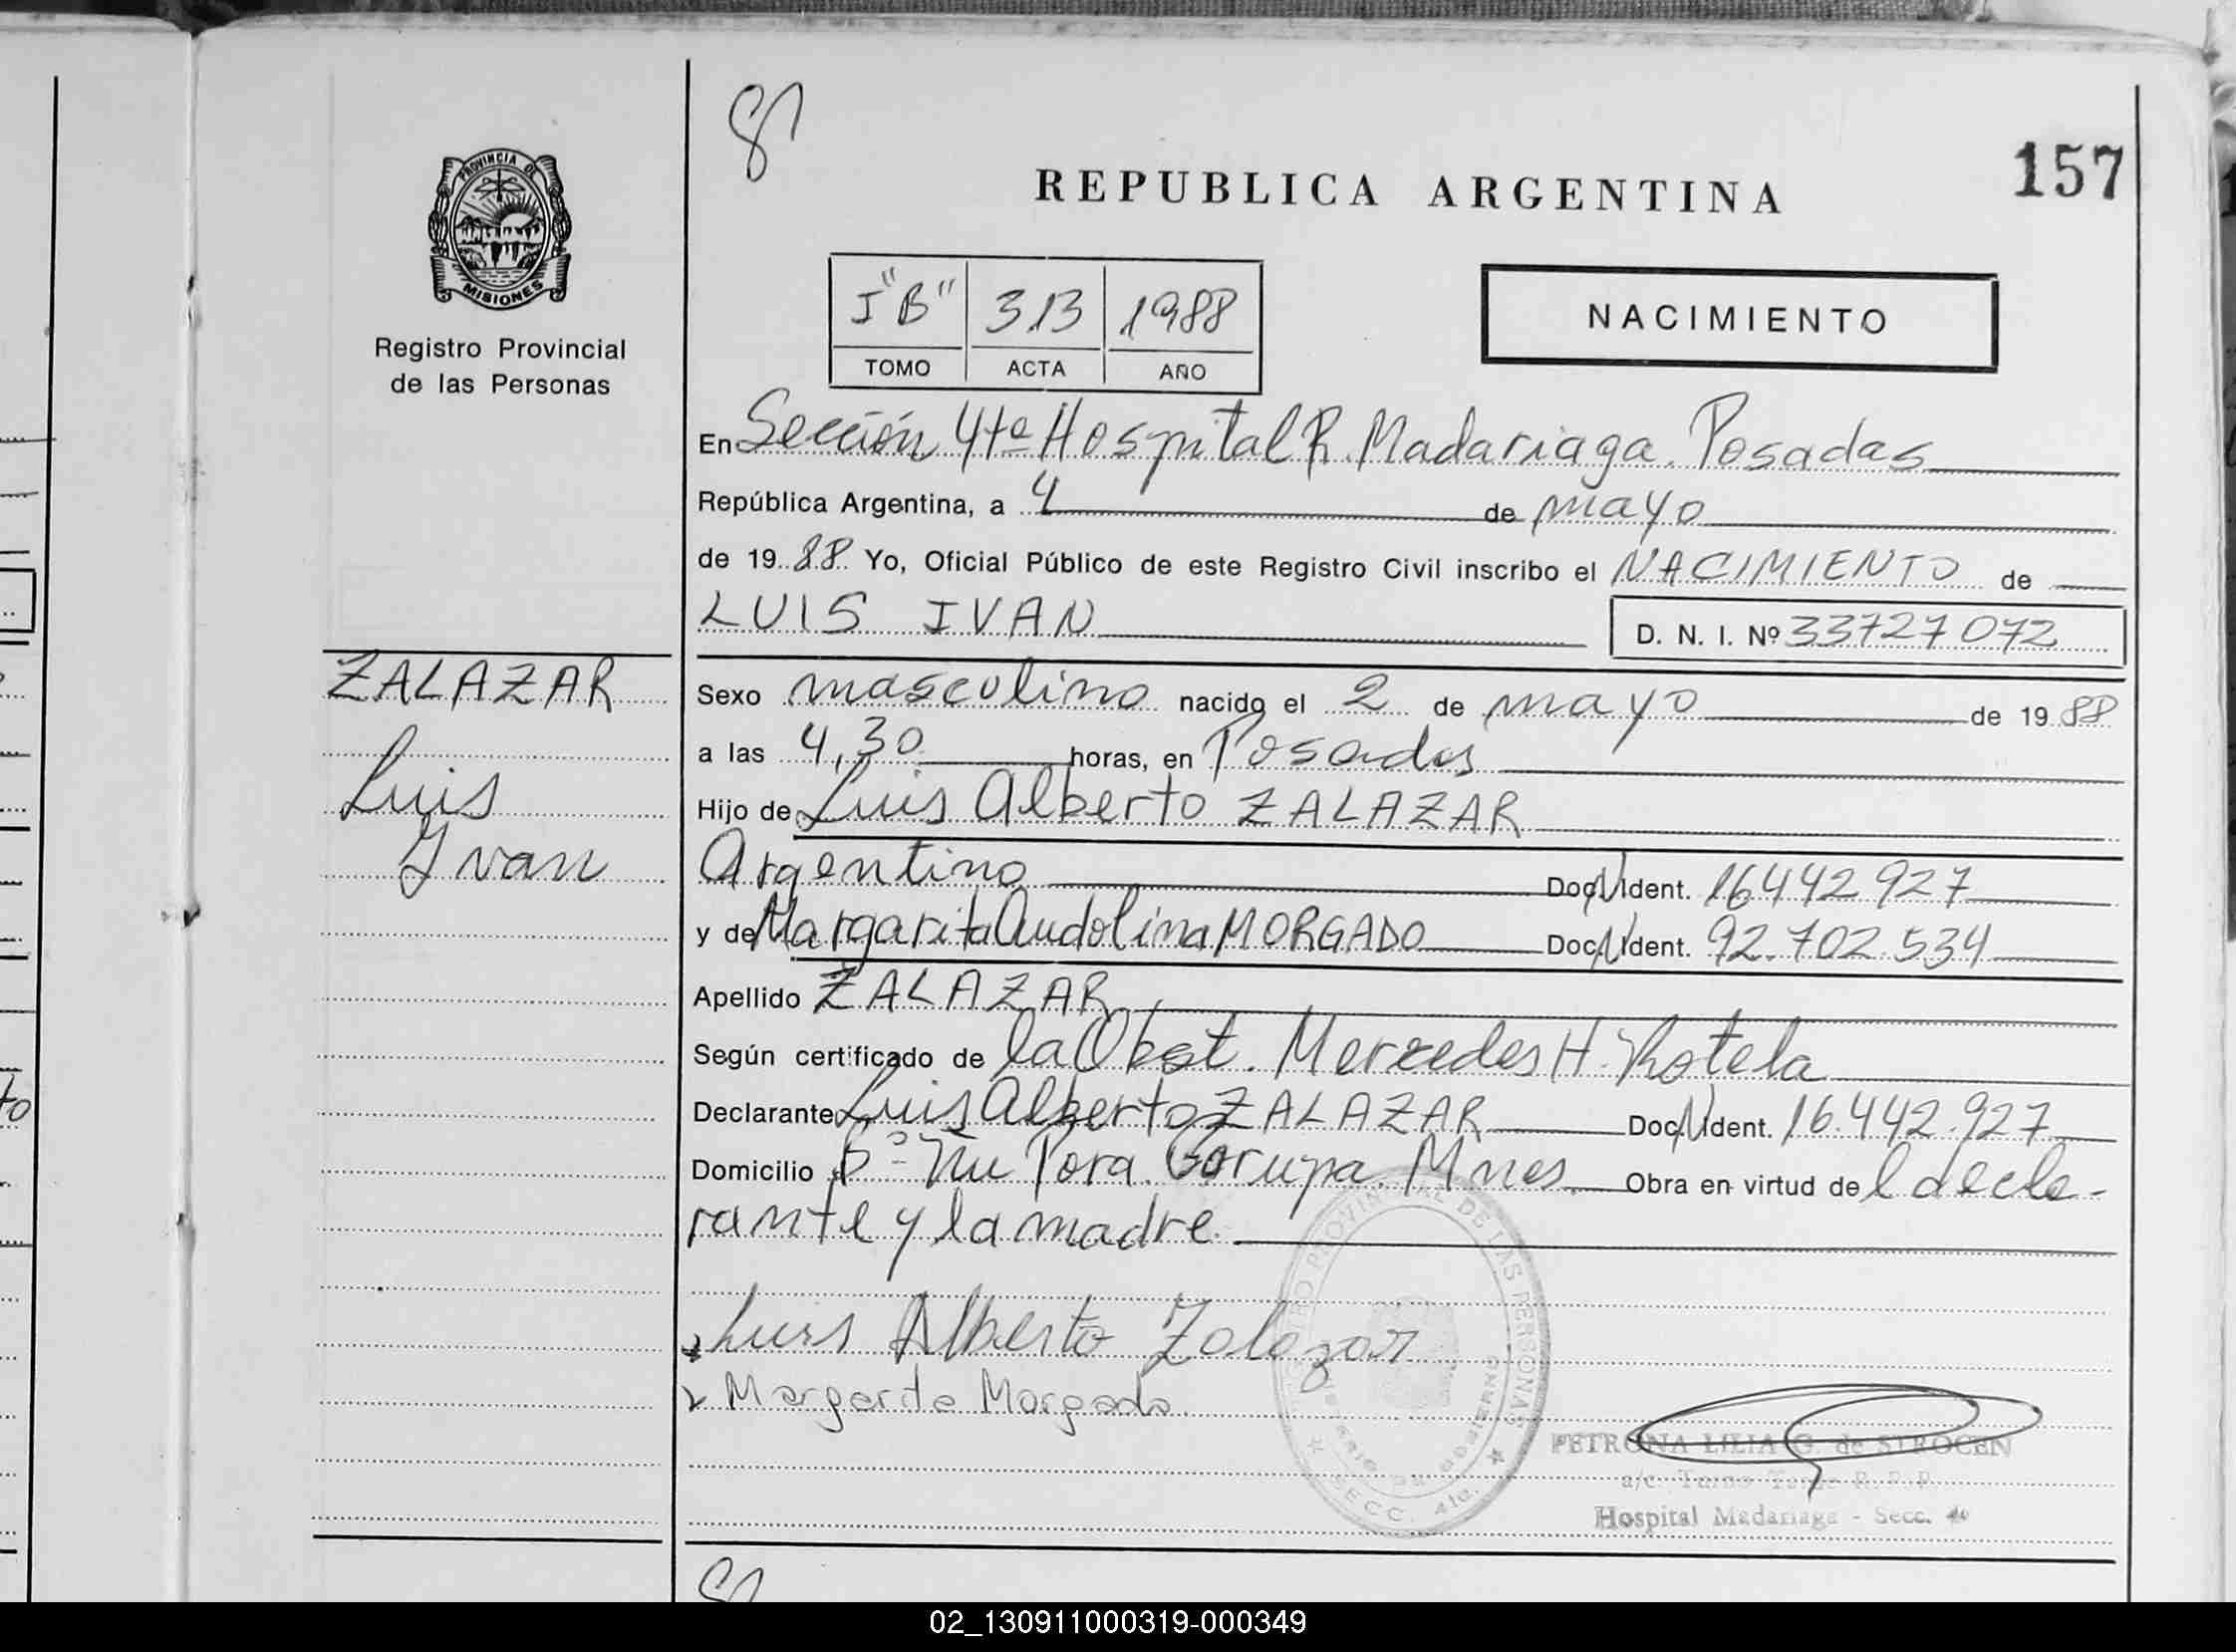 PROVINCIA DE
MISIONES
Registro Provincial
de las Personas
ZALAZAR
Luis
Ivan
157
REPUBLICA ARGENTINA
I "B" 313 1988
TOMO ACTA AÑO
NACIMIENTO
En Sección 4ta Hospital R. Madariaga. Posadas
República Argentina, a 4 de mayo
de 19 88 Yo, Oficial Público de este Registro Civil inscribo el NACIMIENTO de
LUIS IVAN D. N. I. Nº 33727072
Sexo masculino nacido el 2 de mayo de 19 88
a las 4,30 horas, en Posadas
Hijo de Luis Alberto ZALAZAR
Argentino Doc. Ident. 16442927
y de Margarita Audolina MORGADO Doc. Ident. 92.702.534
Apellido ZALAZAR
Según certificado de la Obst. Mercedes H. Rotela
Declarante Luis Alberto ZALAZAR Doc. Ident. 16.442.927
Domicilio Bº Ñu Pora. Garupa. Mnes. Obra en virtud de l decla-
rante y la madre.
Luis Alberto Zalazar
Margarita Morgado
REGISTRO PROVINCIAL DE LAS PERSONAS
SECC. 4ta.
PETRONA LILIA G. de STROCEN
a/c. Turno Tarde R. P. P.
Hospital Madariaga - Secc. 4a
02_130911000319-000349